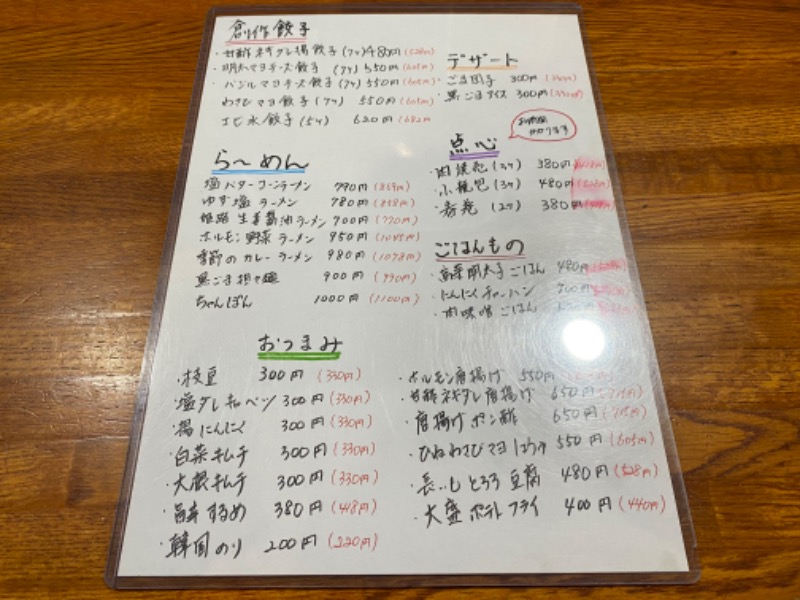 創作餃子
・甘酢ネギタレ揚餃子(7ケ)480円(528円)
・明太マヨチーズ餃子(7ケ)550円(605円)
・バジルマヨチーズ餃子(7ケ)550円(605円)
わさびマヨ餃子(7ケ) 550円(605円)
エビ水餃子(5ケ) 620円(682円
デザート
・ごま団子 300円(330円)
・黒ごまアイス 300円(330円)
ら〜めん
塩バターコーンラーメン 790円(869円)
ゆず塩ラーメン 780円(858円)
姫路生姜醤油ラーメン 700円(770円)
ホルモン野菜ラーメン 950円(1045円)
季節のカレーラーメン 980円(1078円)
黒ごま担々麺 900円(990円)
ちゃんぽん 1000円(1100円)
お時間かかります
点心
・肉焼売(3ケ) 380円
・小籠包(3ケ) 480円
・春巻(2ケ) 380円
ごはんもの
・高菜明太子ごはん 480円
・にんにくチャーハン 700円
・肉味噌ごはん
おつまみ
・枝豆 300円(330円)
・塩ダレキャベツ 300円(330円)
・揚にんにく 300円(330円)
・白菜キムチ 300円(330円)
・大根キムチ 300円(330円)
・旨辛するめ 380円(418円)
・韓国のり 200円(220円)
・ホルモン唐揚げ 550円
・甘酢ネギダレ唐揚げ 650円(715円)
・唐揚げポン酢 650円(715円)
・ひねわさびマヨ 550円(605円)
・長いもとろろ豆腐 480円(528円)
・大盛ポテトフライ 400円(440円)